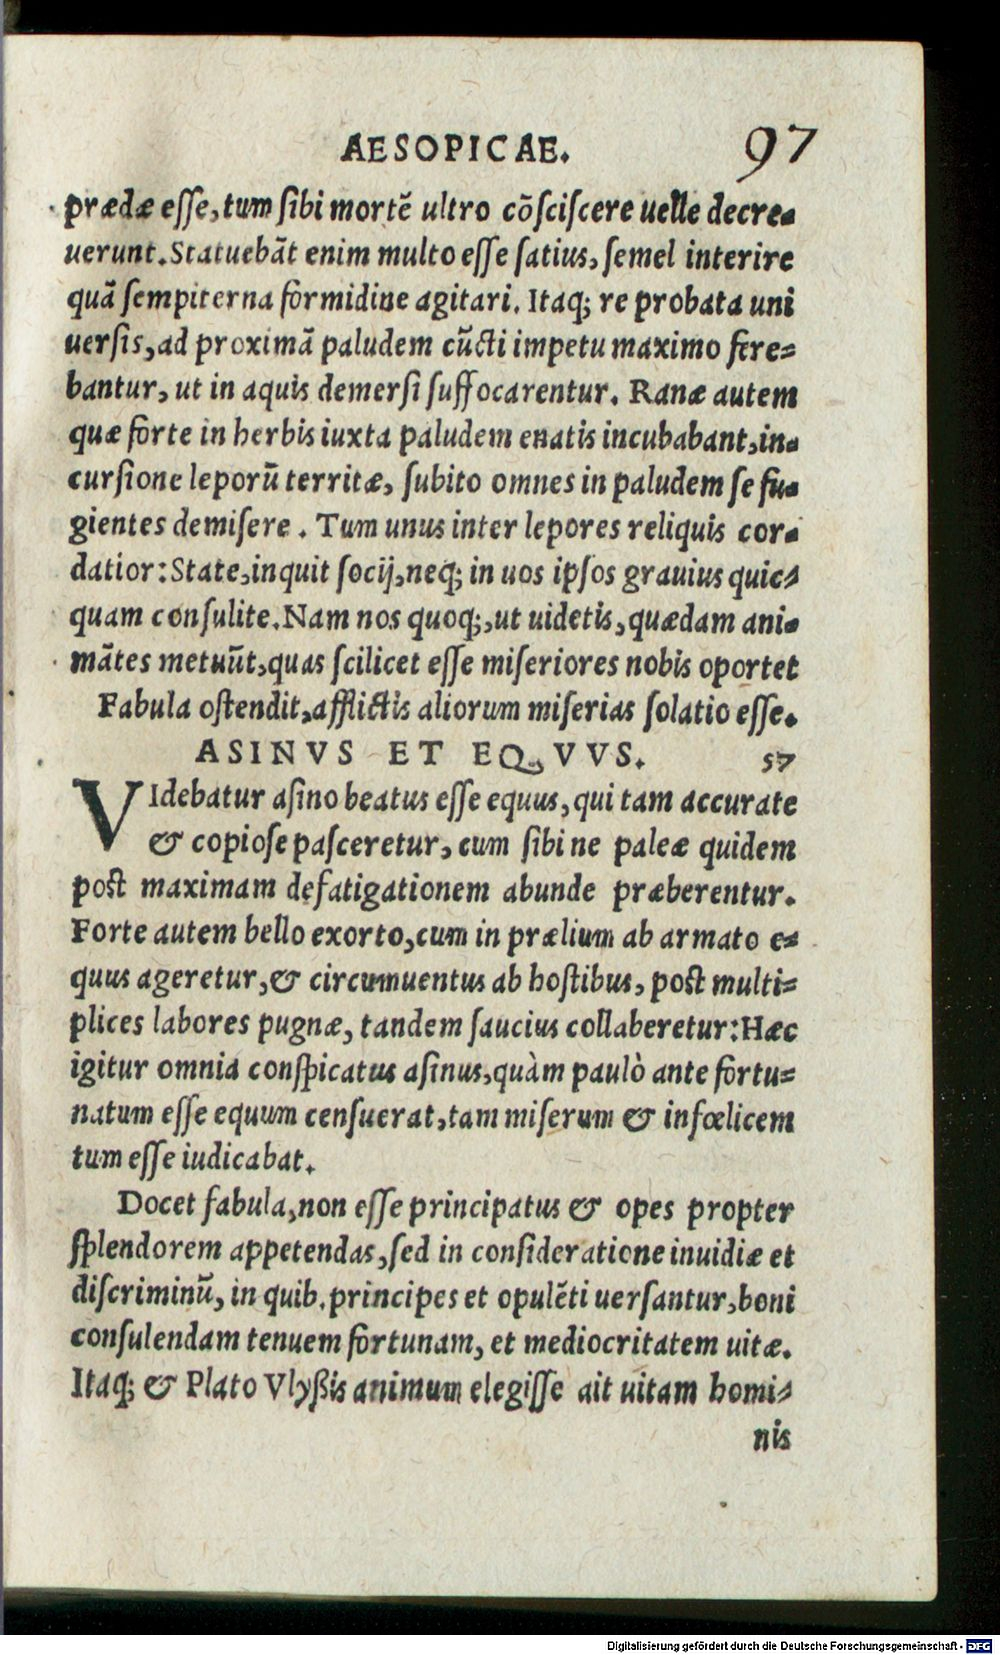 AESOPICAE. 97
prædæ esse, tum sibi mortẽ ultro cõsciscere uelle decre-
uerunt. Statuebãt enim multo esse satius, semel interire
quã sempiterna formidine agitari. Itaq; re probata uni
uersis, ad proximã paludem cũcti impetu maximo fere-
bantur, ut in aquis demersi suffocarentur. Ranæ autem
quæ forte in herbis iuxta paludem enatis incubabant, in-
cursione leporũ territæ, subito omnes in paludem se fu-
gientes demisere. Tum unus inter lepores reliquis cor-
datior: State, inquit socij, neq; in uos ipsos grauius quic-
quam consulite. Nam nos quoq;, ut uidetis, quædam ani-
mãtes metuũt, quas scilicet esse miseriores nobis oportet
Fabula ostendit, afflictis aliorum miserias solatio esse.
ASINVS ET EQVVS. 57
VIdebatur asino beatus esse equus, qui tam accurate
& copiose pasceretur, cum sibi ne paleæ quidem
post maximam defatigationem abunde præberentur.
Forte autem bello exorto, cum in prælium ab armato e-
quus ageretur, & circumuentus ab hostibus, post multi-
plices labores pugnæ, tandem saucius collaberetur: Hæc
igitur omnia conspicatus asinus, quàm paulò ante fortu-
natum esse equum censuerat, tam miserum & infœlicem
tum esse iudicabat.
Docet fabula, non esse principatus & opes propter
splendorem appetendas, sed in consideratione inuidiæ et
discriminũ, in quib. principes et opulẽti uersantur, boni
consulendam tenuem fortunam, et mediocritatem uitæ.
Itaq; & Plato Vlyßis animum elegisse ait uitam homi-
nis
Digitalisierung gefördert durch die Deutsche Forschungsgemeinschaft - DFG